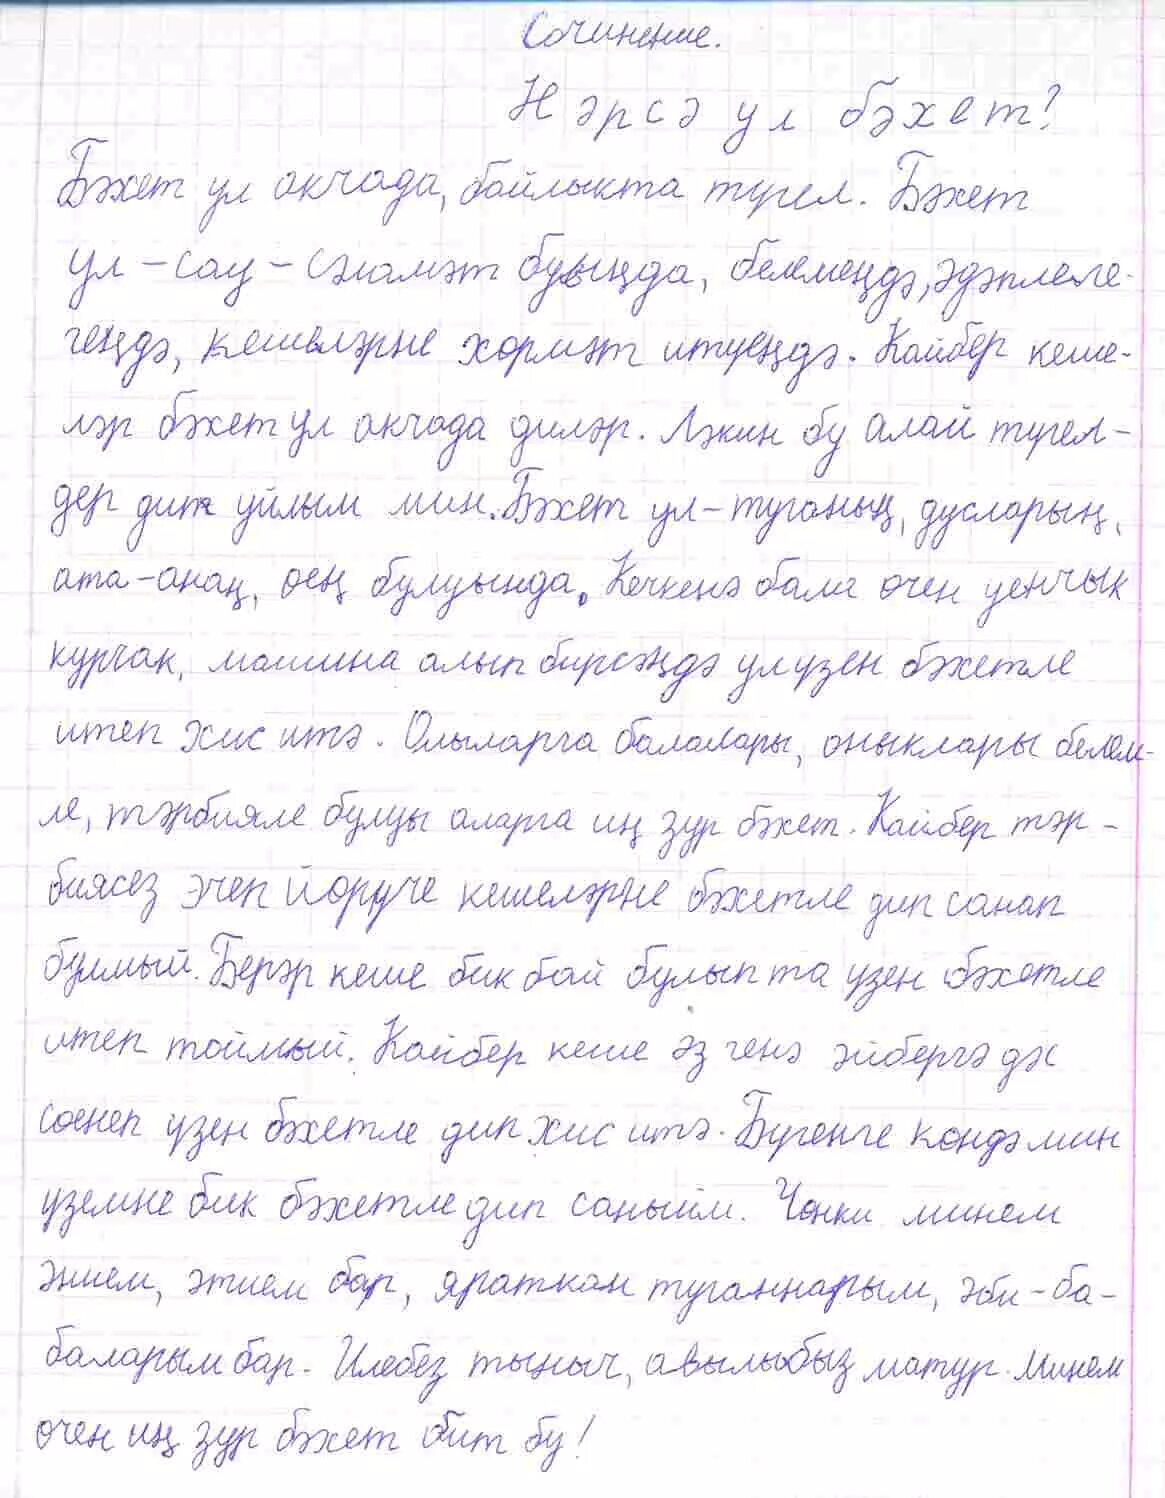 Сочинение.
Нәрсә ул бәхет?
Бәхет ул акчада, байлыкта түгел. Бәхет
ул – сау – сәламәт буыңда, белемеңдә, әдәплеле-
геңдә, кешеләрне хөрмәт итүеңдә. Кайбер кеше-
ләр бәхет ул акчада диләр. Ләкин бу алай түгел-
дер дип уйлыйм мин. Бәхет ул – туганың, дусларың,
ата-анаң, өең булуында. Кечкенә бала өчен уенчык
курчак, машина алып бирсәңдә ул үзен бәхетле
итеп хис итә. Олыларга балалары, оныклары белем-
ле, тәрбияле булуы аларга иң зур бәхет. Кайбер тәр-
биясез эчеп йөрүче кешеләрне бәхетле дип санап
булмый. Берәр кеше бик бай булып та үзен бәхетле
итеп тоймый. Кайбер кеше әз генә әйбергә дә
сөенеп үзен бәхетле дип хис итә. Бүгенге көндә мин
үземне бик бәхетле дип саныйм. Чөнки минем
әнием, әтием бар, яраткан туганнарым, әби-ба-
баларым бар. Илебез тыныч, авылыбыз матур. Минем
өчен иң зур бәхет бит бу!